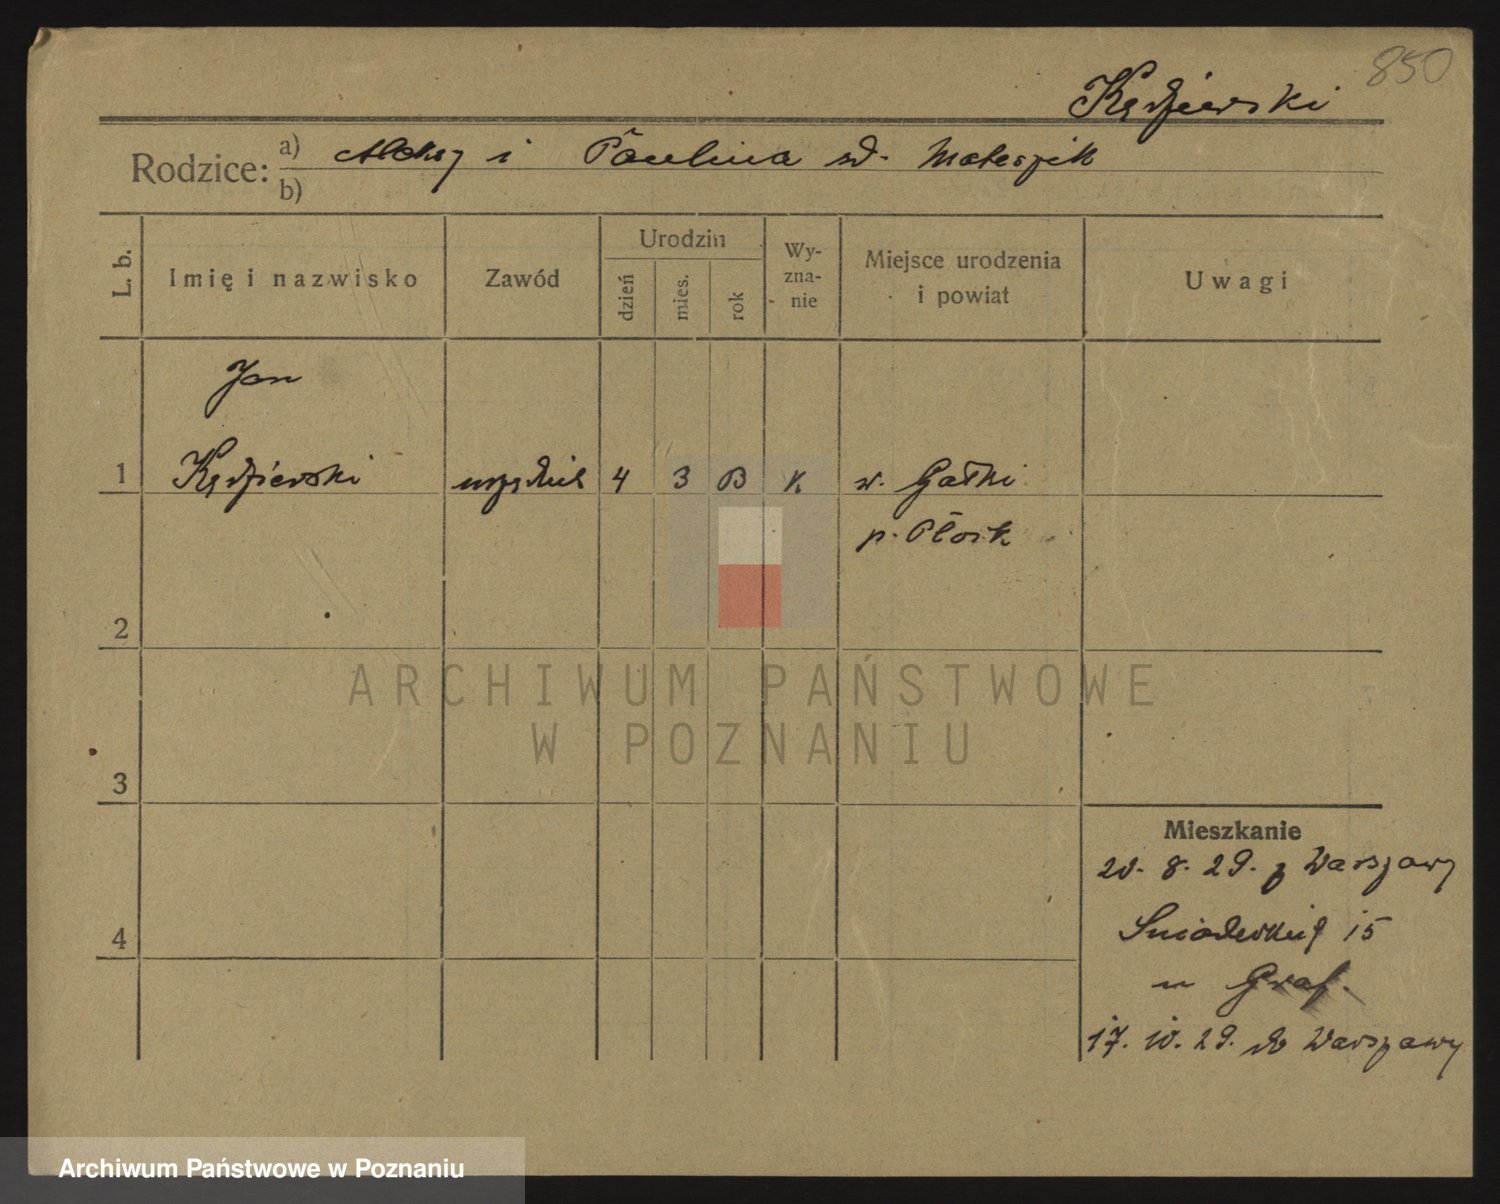 850
Kędzierski
Rodzice: a) Aleksy i Paulina zd. Mateszik
b)
L. b.
Imię i nazwisko
Zawód
Urodzin
dzień
mies.
rok
Wy-
zna-
nie
Miejsce urodzenia
i powiat
Uwagi
Jan
1 Kędzierski urzędnik 4 3 K. w. Gałki
p. Płock
2
3
4
Mieszkanie
20. 8. 29. z Warszawy
Sniadeckich 15
u Graf.
17. 10. 29. do Warszawy
ARCHIWUM PAŃSTWOWE
W POZNANIU
Archiwum Państwowe w Poznaniu